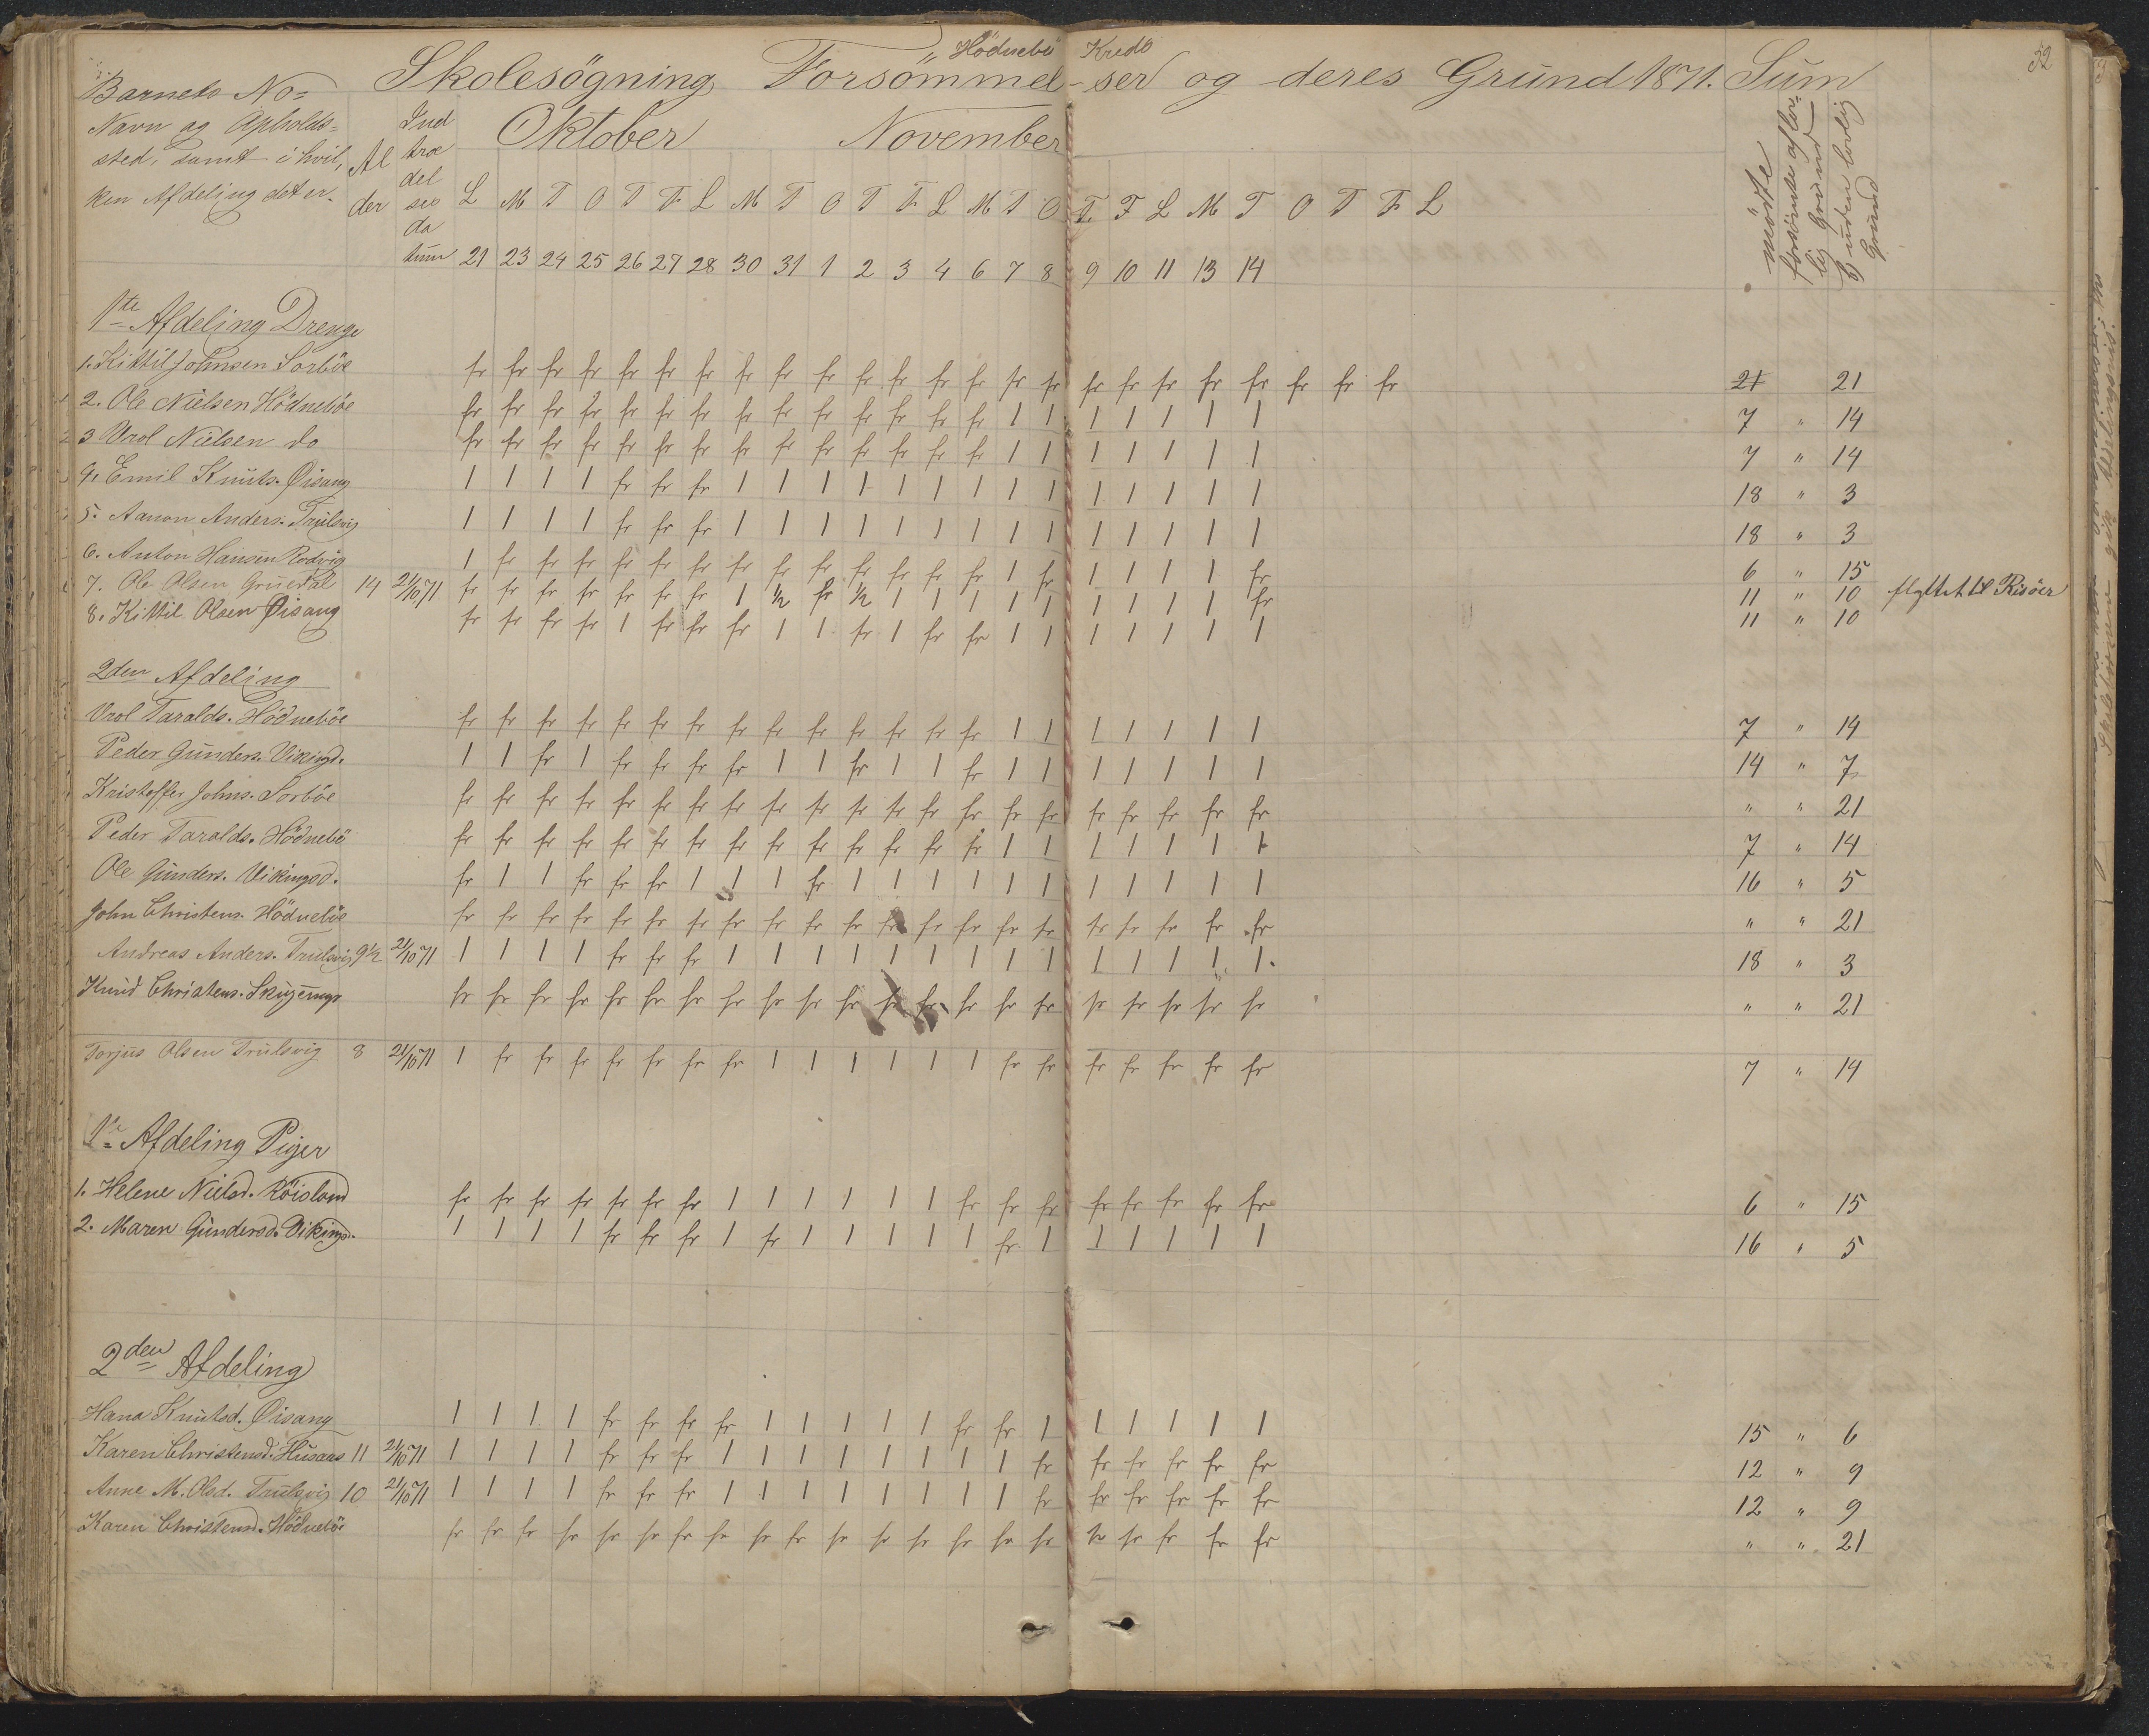 Hödnebö Kreds
52
Skolesögning, Forsömmel-ser og deres Grund 1871. Sum
Barnets No=
Navn og Opholds=
sted, samt i hvil,
ken Afdeling det er.
Al
der
Ind
træ
del
ses
da
tum
Oktober November
møtte
forsömte af lov-
lig Grund
uden lovlig
Grund
L M T O T F L M T O T F L M T O T F L M T O T F L
21 23 24 25 26 27 28 30 31 1 2 3 4 6 7 8 9 10 11 13 14
1ste Afdeling Drenge
1. Kittil Johnsen Sorböe fr fr fr fr fr fr fr fr fr fr fr fr fr fr fr fr fr fr fr fr fr fr fr fr 21 " 21
2. Ole Nielsen Hödneböe fr fr fr fr fr fr fr fr fr fr fr fr fr fr 1 1 1 1 1 1 1 7 " 14
3 Vrol Nielsen do fr fr fr fr fr fr fr fr fr fr fr fr fr fr 1 1 1 1 1 1 1 7 " 14
4. Emil Knuts. Øisang 1 1 1 1 fr fr fr 1 1 1 1 1 1 1 1 1 1 1 1 1 1 18 " 3
5. Aanon Anders. Trulsvig 1 1 1 1 fr fr fr 1 1 1 1 1 1 1 1 1 1 1 1 1 1 18 " 3
6. Anton Hansen Rodvig 1 fr fr fr fr fr fr fr fr fr fr fr fr fr 1 fr 1 1 1 1 fr 6 " 15
7. Ole Olsen Gruerdal 14 21/10 71 fr fr fr fr fr fr fr 1 ½ fr ½ 1 1 1 1 1 1 1 1 1 fr 11 " 10 flyttet til Risöer
8. Kittil Olsen Øisang fr fr fr fr 1 fr fr fr 1 1 fr 1 fr fr 1 1 1 1 1 1 1 11 " 10
2den Afdeling
Vrol Taralds. Hödneböe fr fr fr fr fr fr fr fr fr fr fr fr fr fr 1 1 1 1 1 1 1 7 " 14
Peder Gunders. Vikingd. 1 1 fr 1 fr fr fr fr 1 1 fr 1 1 fr 1 1 1 1 1 1 1 14 " 7
Kristoffer Johns. Sorböe fr fr fr fr fr fr fr fr fr fr fr fr fr fr fr fr fr fr fr fr fr " " 21
Peder Taralds. Hödnebö fr fr fr fr fr fr fr fr fr fr fr fr fr fr 1 1 1 1 1 1 1 7 " 14
Ole Gunders. Vikingsd. fr 1 1 fr fr fr 1 1 1 fr 1 1 1 1 1 1 1 1 1 1 1 16 " 5
John Christens. Hödneböe fr fr fr fr fr fr fr fr fr fr fr fr fr fr fr fr fr fr fr fr fr " " 21
Andreas Anders. Trulsvig 9½ 21/10 71 1 1 1 1 fr fr fr 1 1 1 1 1 1 1 1 1 1 1 1 1 1 18 " 3
Knud Christens. fr fr fr fr fr fr fr fr fr fr fr fr fr fr fr fr fr fr fr fr fr " " 21
Torjus Olsen Trulsvig 8 21/10 71 1 fr fr fr fr fr fr fr 1 1 1 1 1 1 fr fr fr fr fr fr fr 7 " 14
1ste Afdeling Piger
1. Helene Nielsd. Röisland fr fr fr fr fr fr fr 1 1 1 1 1 1 fr fr fr fr fr fr fr fr 6 " 15
2. Maren Gundersd. Vikingsd. 1 1 1 1 fr fr fr 1 fr 1 1 1 1 1 fr 1 1 1 1 1 1 16 " 5
2den Afdeling
Hana Knutsd. Øisang 1 1 1 1 fr fr fr fr 1 1 1 1 1 fr fr 1 1 1 1 1 1 15 " 6
Karen Christensd. Husaas 11 21/10 71 1 1 1 1 fr fr fr 1 1 1 1 1 1 1 1 fr fr fr fr fr fr 12 " 9
Anne M. Olsd. Trulsvig 10 21/10 71 1 1 1 1 fr fr fr 1 1 1 1 1 1 1 1 fr fr fr fr fr fr 12 " 9
Karen Christensd. Hödneböe fr fr fr fr fr fr fr fr fr fr fr fr fr fr fr fr fr fr fr fr fr " " 21